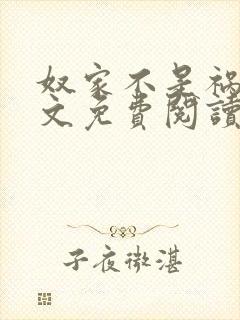 奴家不是禍
文免費閱讀
子夜微湛